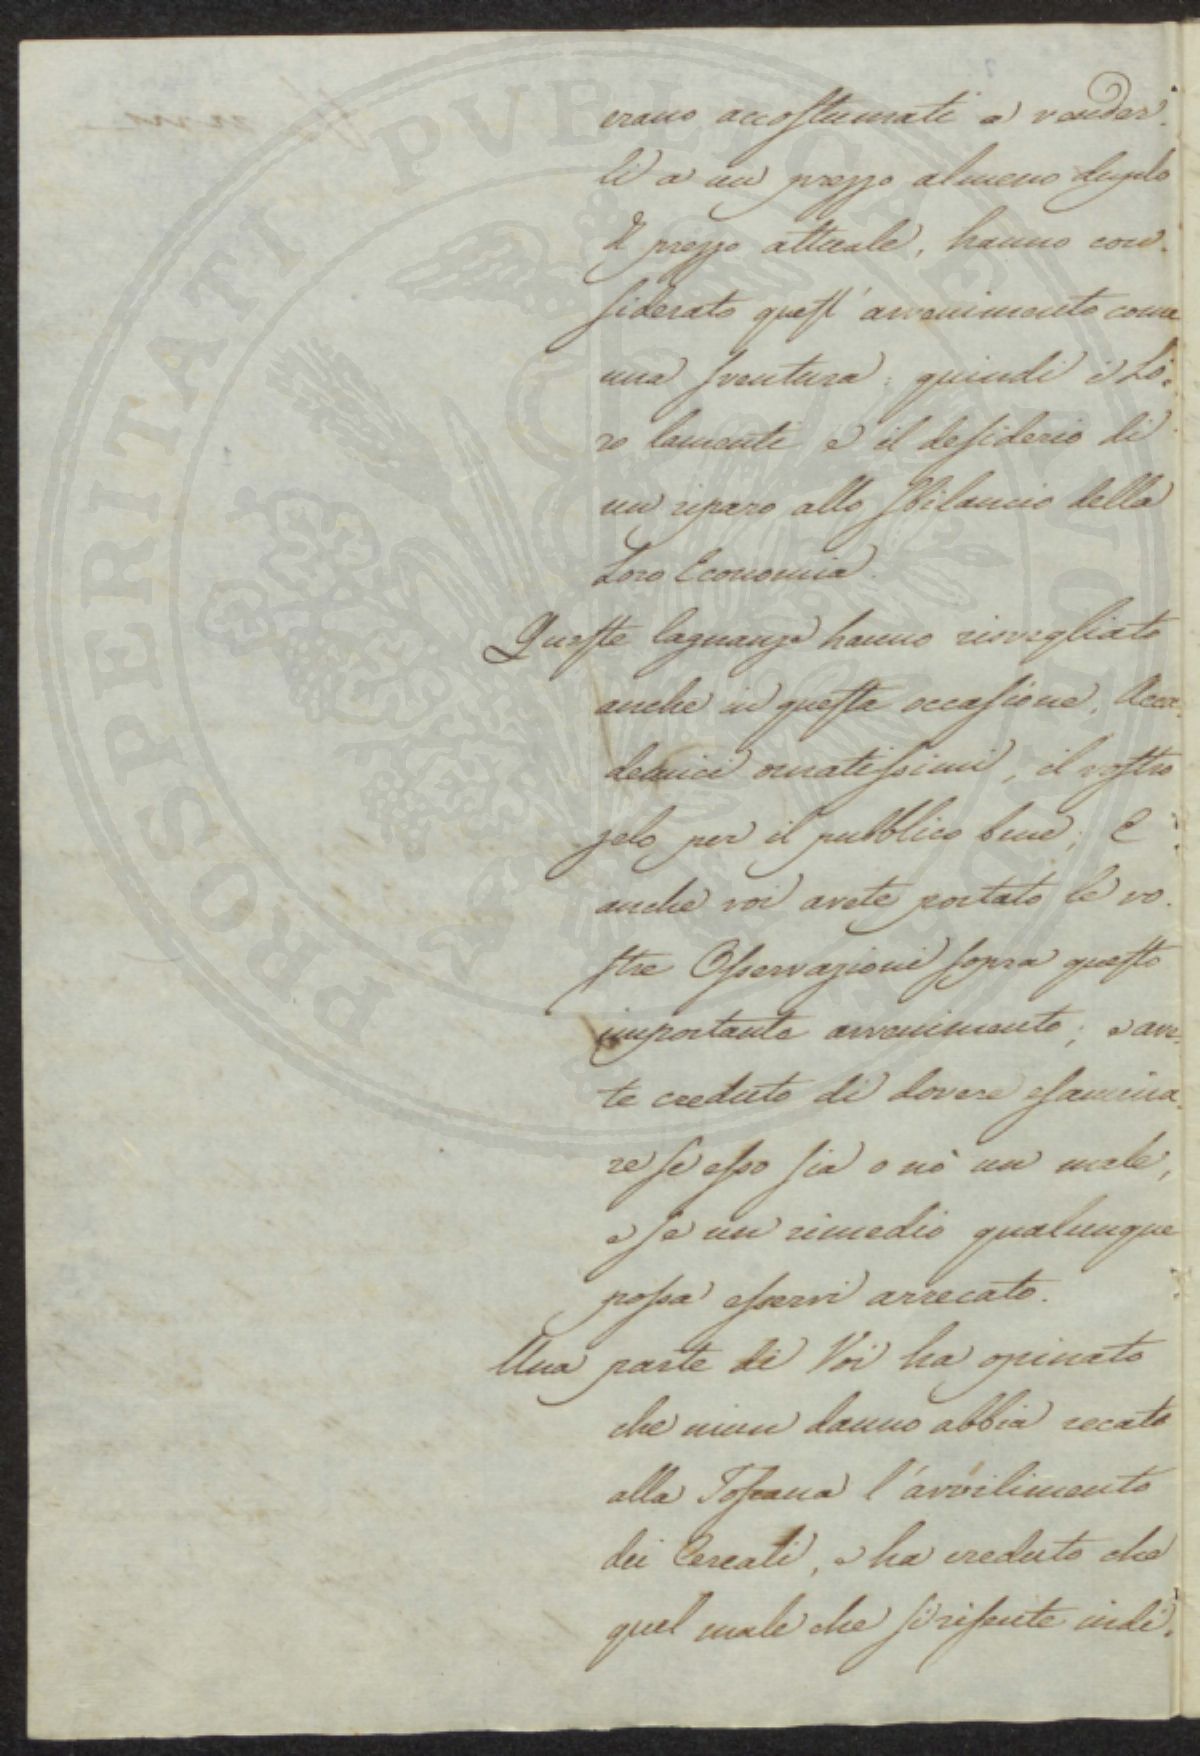 erano accostumati a vender-
li a un prezzo almeno duplo
Il prezzo attuale, hanno con-
siderato quest' avvenimento come
una sventura; quindi i Lo-
ro lamenti e il desiderio di
un riparo allo sbilancio della
Loro Economia.
Queste lagnanze hanno risvegliato
anche in questa occasione, Acca-
demici ornatissimi, il vostro
zelo per il pubblico bene; E
anche voi avete portato le vo-
stre Osservazioni sopra questo
importante avvenimento; e ave-
te creduto di dovere esamina-
re se esso sia o nò un male,
e se un rimedio qualunque
possa esservi arrecato.
Una parte di Voi ha opinato
che niun danno abbia recato
alla Toscana l'avvilimento
dei Cereali, e ha creduto che
quel male che si risente indi-
PROSPERITATI PVBLICAE